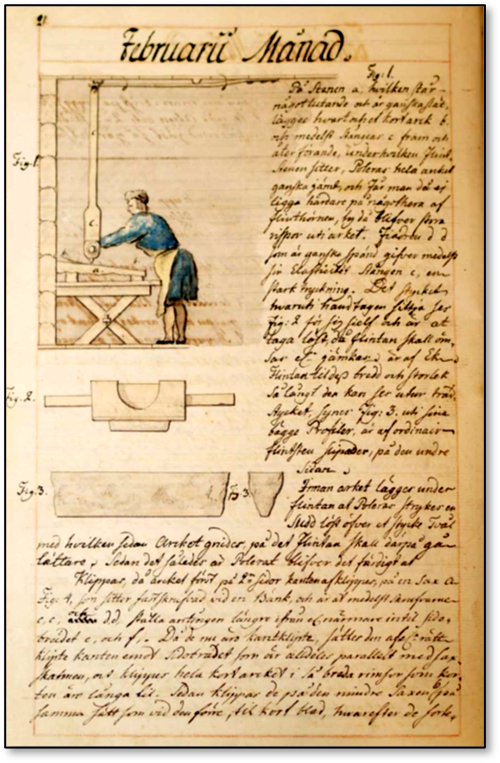 21
Februarii Månad.
Fig: 1.
På Stenen a, hvilken står
något lutande och är ganska slät,
lägges hwart ahsel kortark b
och medelst stången c fram och
åter förande, under hvilken flint-
stenen sitter, Poleras hela arket
ganska jämt, och får man då ej
ligga hårdare på någothera af
flinthörnen, ty då blifver stora
rispor uti arket. Fiädren d d
som är ganska spänd gifver medelst
sin Elasticitet Stången c, en
stark tryckning. Det stycket
hwaruti handtagen sittja ses
Fig: 2 för sig sielf och är at
taga löst, då flintan skall om-
sas el. jämkas, är af Ek
Flintan til dess bred och storlek
så långt den kan ses utur träd
stycket, synes Fig: 3. uti sina
bägge Profiler, är af ordinair
flintsten slipader, på den undre
Sidan.
Fig. 1.
Fig. 2.
Fig. 3.
F: 3
Innan arket lägges under
flintan at Poleras strykes en
Sudd löst öfver et stycke Tvål
med hvilken sedan Arcket gnides, på det Flintan skall därpå gå
lättare. Sedan det således är Polerat blifver det färdigt at
Klippas, då arcket först på 2:e sidor kanten afklippas, på en Sax a
Fig: 4, som sitter fastskrufvad vid en Bänk, och är at medelst skrufvarne
c, c, d d ställa antingen längre ifrån el närmare intil side-
brädet e, och f. Då de nu äro kantklipte, sättes den afe rätt
klipte kanten emot sidobrädet som är alldeles parallelt med sax-
skatmen, och klippes hela kortarcket i så breda rimsor som kor-
ten äro långa til. Sedan klippas de på den mindre Saxen på
samma sätt som vid den förre, til kort blad, hwarefter de sorte-